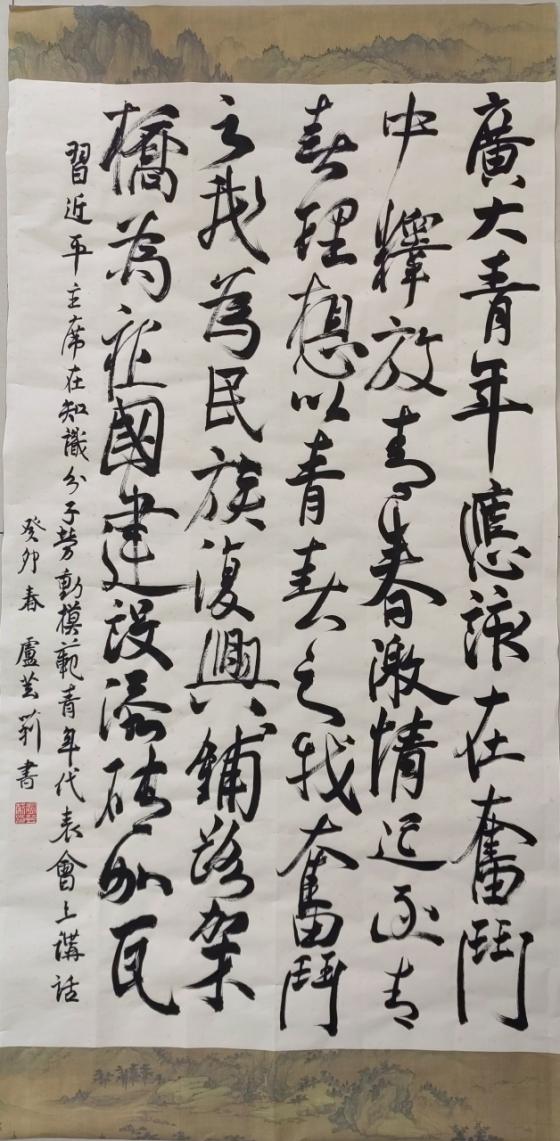 廣大青年應該在奮鬥
中釋放青春激情追逐青
春理想以青春之我奮鬥
之我為民族復興鋪路架
橋為祖國建設添磚加瓦
習近平主席在知識分子勞動模範青年代表會上講話
癸卯春 盧芸莉書